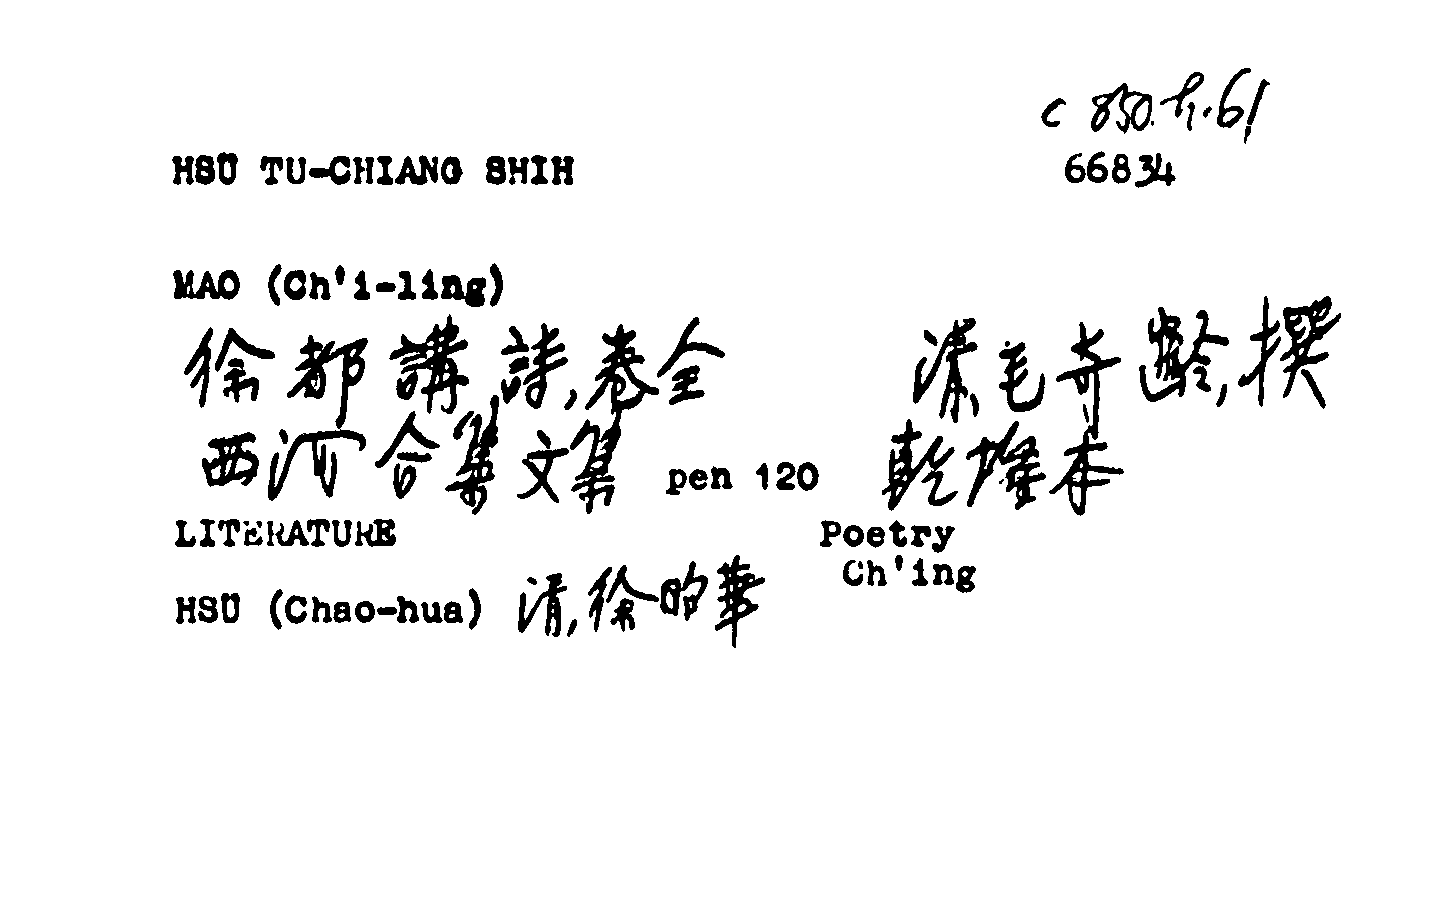 C 850.h.61
HSÜ TU-CHIANG SHIH 66834
MAO (Ch'i-ling)
徐都講詩,卷全 清,毛奇齡,撰
西河合集文集 pen 120 乾隆本
LITERATURE Poetry
Ch'ing
HSÜ (Chao-hua) 清,徐昭華